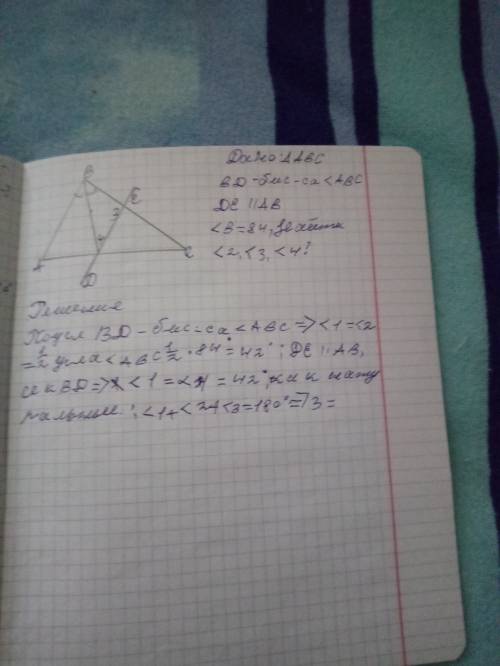 B
E
3
4
A
D
C
Дано: ΔABC
BD - бис-са <ABC
DE || AB
<B = 84, Найти
<2, <3, <4?
Решение
BD - бис-са <ABC => <1 = <2
= 1/2 угла <ABC 1/2 · 84° = 42°; DE || AB,
сек BD => <1 = <4 = 42°, как
<1 + <2 + <3 = 180° => 3 =